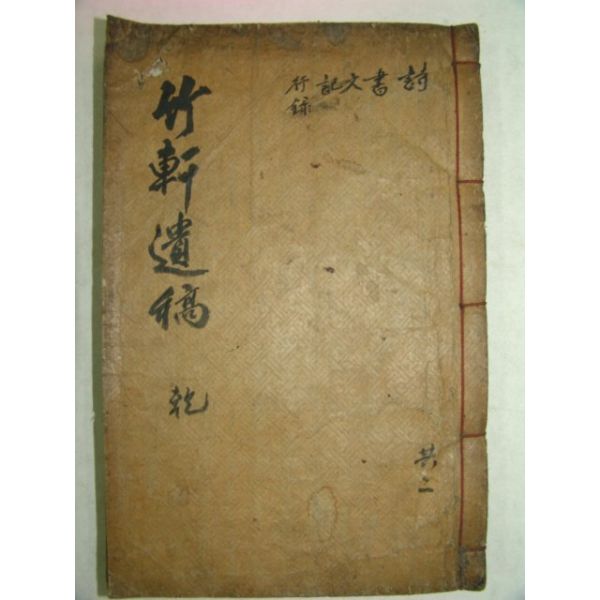 詩書文記行錄
共二
竹軒遺稿 乾